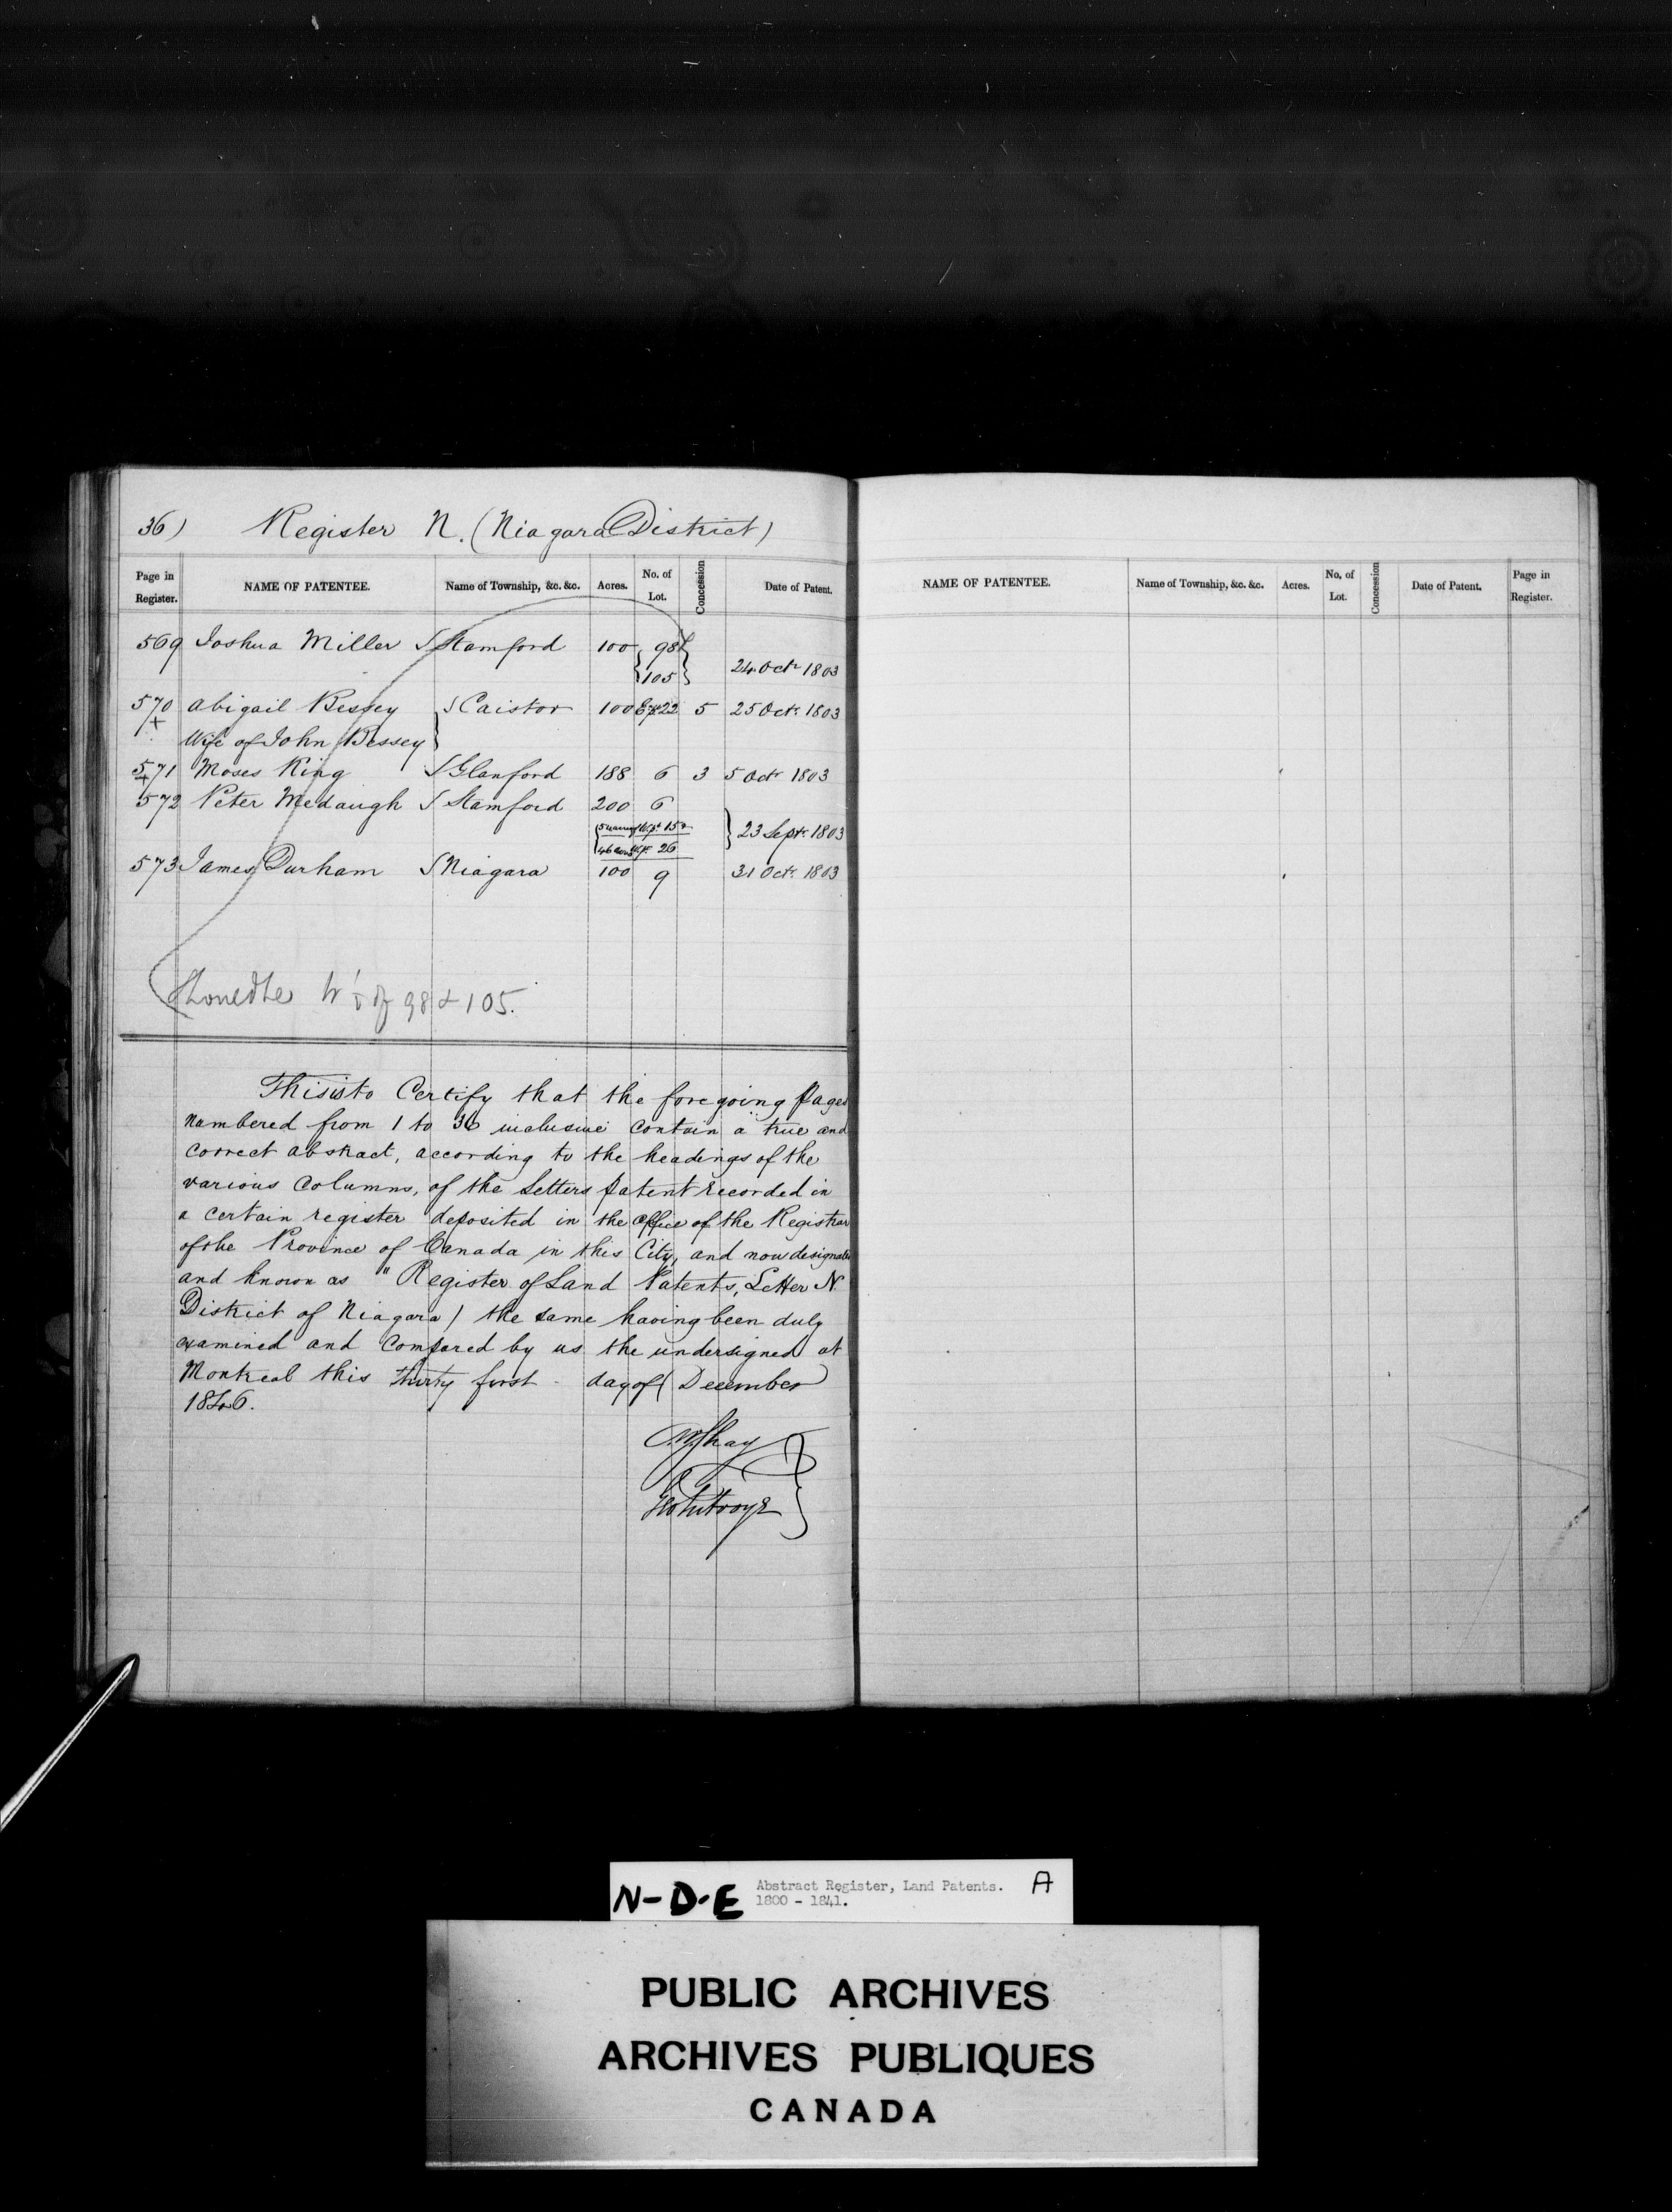 36) Register N. (Niagara District)
Page in Register. NAME OF PATENTEE. Name of Township, &c. &c. Acres. No. of Lot. Concession Date of Patent.
569 Joshua Miller Stamford 100 98
105 24 Octr 1803
570 Abigail Bessey Caistor 100 22 5 25 Octr. 1803
+ Wife of John Bessey
571 Moses King Glanford 188 6 3 5 Octr 1803
+
572 Peter Medaugh Stamford 200 6
15 23 Septr. 1803
26
573 James Durham Niagara 100 9 31 Octr. 1803
98 & 105.
This is to Certify that the foregoing pages
numbered from 1 to 36 inclusive contain a true and
correct abstract, according to the headings of the
various columns, of the Letters patent recorded in
a certain register deposited in the office of the Registrar
of the Province of Canada in this City, and now designated
and known as "Register of Land Patents, Letter N.
District of Niagara) the same having been duly
examined and compared by us the undersigned at
Montreal this thirty first day of December
1846.
NAME OF PATENTEE. Name of Township, &c. &c. Acres. No. of Lot. Concession Date of Patent. Page in Register.
N-D-E Abstract Register, Land Patents. A
1800 - 1841.
PUBLIC ARCHIVES
ARCHIVES PUBLIQUES
CANADA